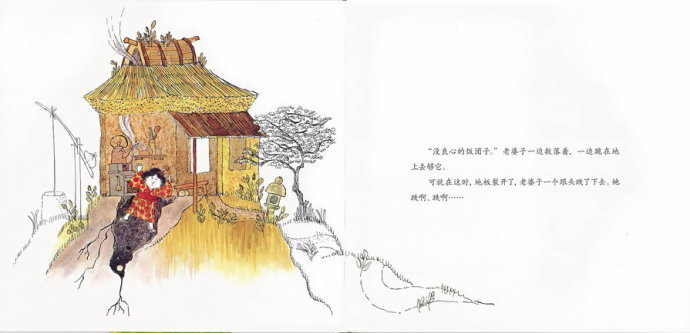 “没良心的饭团子。”老婆子一边数落着，一边跪在地
上去够它。
可就在这时，地板裂开了，老婆子一个跟头跌了下去。她
跌啊、跌啊……